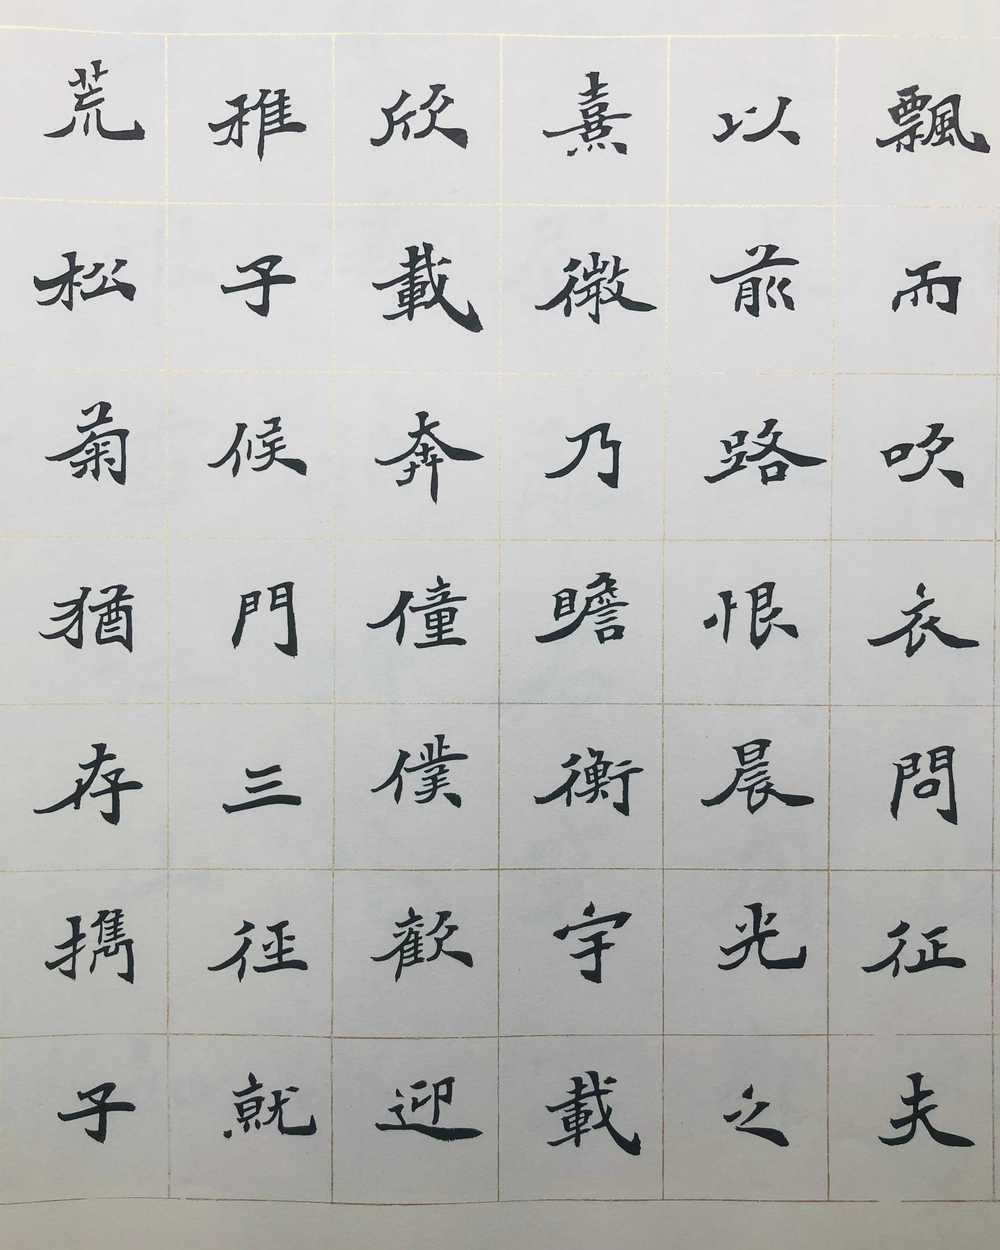 飄而吹衣問征夫
以前路恨晨光之
熹微乃瞻衡宇載
欣載奔僮僕歡迎
稚子候門三徑就
荒松菊猶存擕子